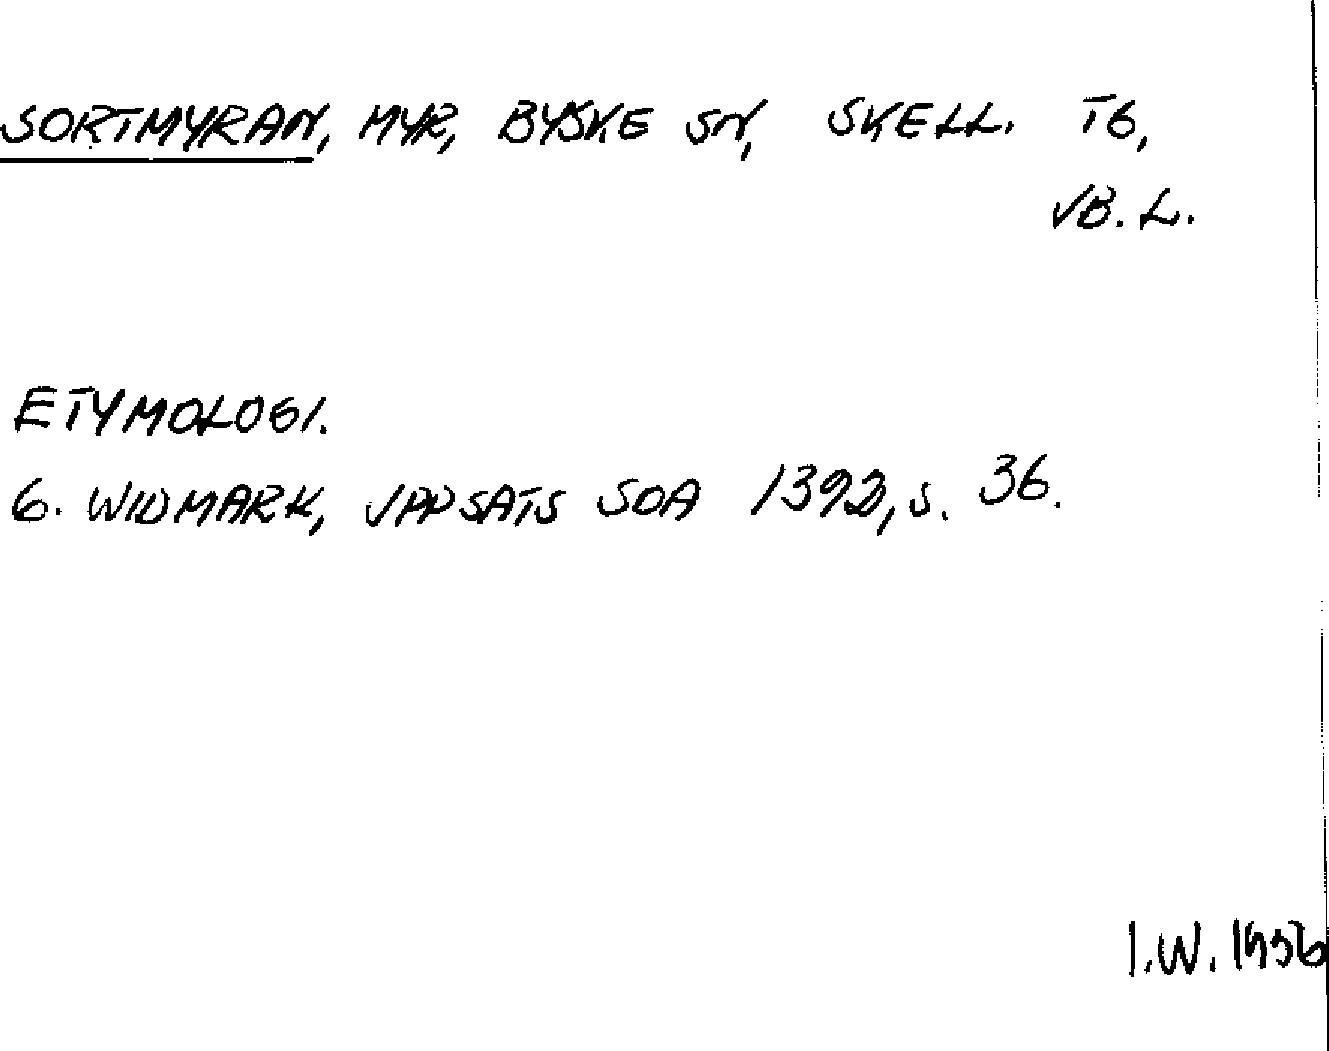 SORTMYRAN, MYR, BYSKE SN, SKELL. TG,
VB. L.
ETYMOLOGI.
G. WIDMARK, UPPSATS SOA 1392, S. 36.
I.W. 1956